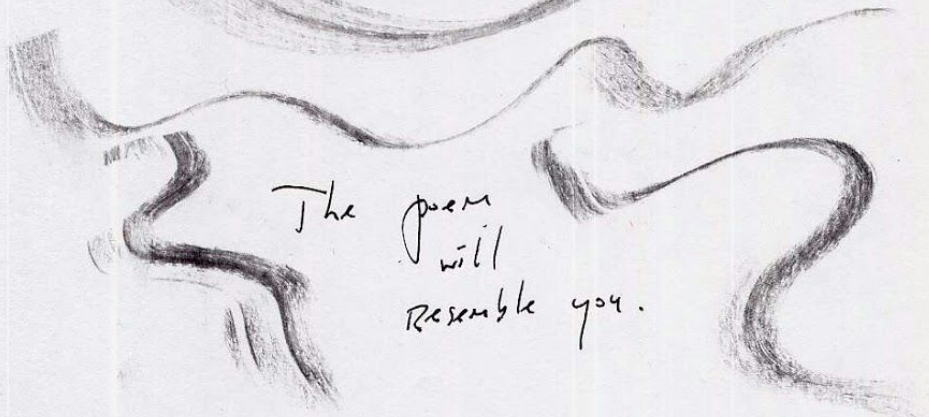 The poem
will
Resemble you.